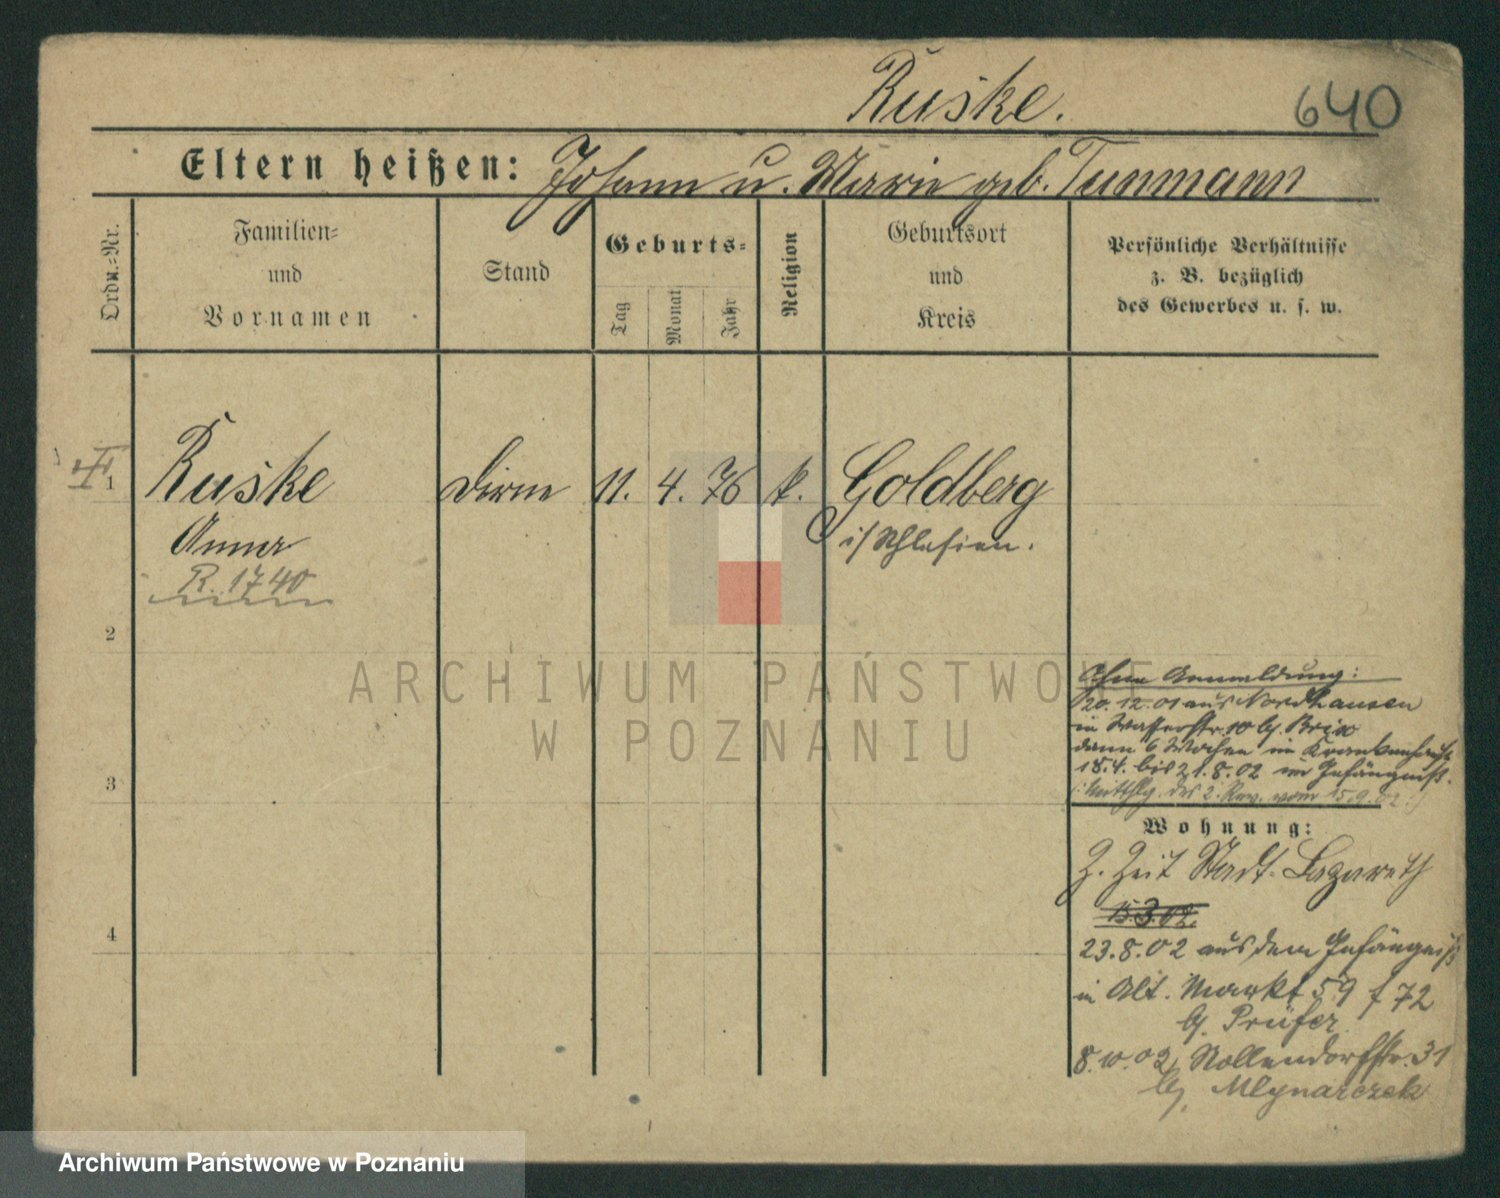 Ruske.
640
Eltern heißen: Johann u. Marie geb. Tunmann
Ordn.-Nr.
Familien-
und
Vornamen
Stand
Geburts-
Tag
Monat
Jahr
Religion
Geburtsort
und
Kreis
Persönliche Verhältnisse
z. B. bezüglich
des Gewerbes u. s. w.
1
Ruske
Dirne
11. 4. 76
k.
Goldberg
Anna
i/Schlesien.
R. 1740
2
3
4
Ohne Anmeldung:
20.12.01 aus Nordhausen
in Wasserstr. 10 b/. Brix
dann 6 Wochen im Krankenhaus
18.4. bis 21.8.02 im Gefängniß.
Mitthlg. des 2. Rev. vom 15.9.02
Wohnung:
Z. Zeit Stadt. Lazareth
15.3.02.
23.8.02 aus dem Gefängniß
in Alt. Markt 59 f 72
b/. Prüfer
8.10.02 Nollendorfstr. 31
b/. Mlynarczek
ARCHIWUM PAŃSTWOWE
W POZNANIU
Archiwum Państwowe w Poznaniu